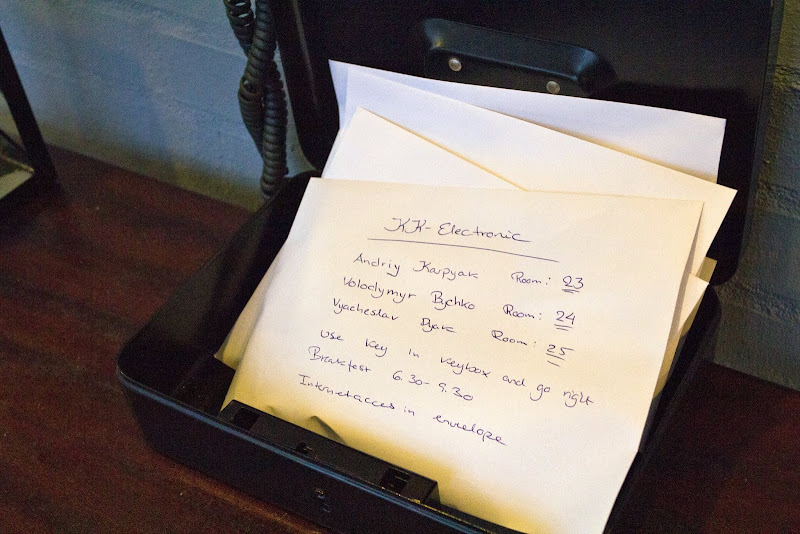 KK-Electronic
Andriy Karpyak Room: 23
Volodymyr Bychko Room: 24
Vyacheslav Dyak Room: 25
use key in keybox and go right
Breakfest 6.30-9.30
Internetacces in envelope